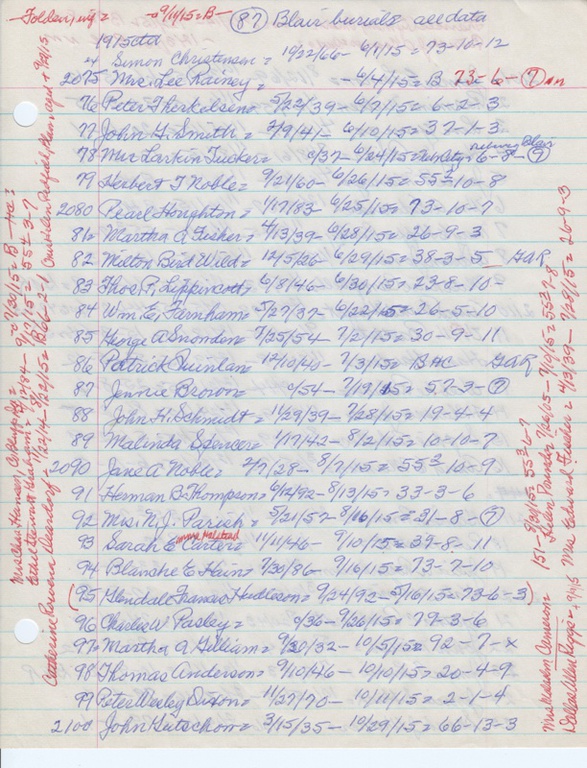 - 9/11/15 = B - (87) Blair burials all data
1915 ctd
Simon Christensen = 10/22/66 - 6/1/15 = 73-10-12
2075 Mrs. Lee Rainey = - 6/4/15 = B 73-6-(7)
76 Peter Therkelsen = 5/22/39 - 6/7/15 = 6-2-3
77 John H. Smith = 2/9/41 - 6/10/15 = 37-1-3
78 Mrs Larkin Tucker = 0/37 - 6/24/15 = 6-8-(7)
79 Herbert T Noble = 9/21/60 - 6/26/15 = 55½-10-8
2080 Pearl Houghton = 1/17/83 - 6/25/15 = 73-10-7
81 Martha A Fisher = 4/13/39 - 6/28/15 = 26-9-3
82 Milton Bird Wild = 12/5/26 - 6/29/15 = 38-3-5 GAR
83 Thos P. Lippincott = 6/8/46 - 6/30/15 = 23-8-10
84 Wm E. Farnham = 5/27/37 - 6/22/15 = 26-5-10
85 George A Snowden = 7/25/54 - 7/2/15 = 30-9-11
86 Patrick Quinlan = 12/10/40 - 7/3/15 = B HC GAR
87 Jennie Brown = 0/54 - 7/19/15 = 57-3-(7)
88 John H. Schmidt = 11/29/39 - 7/28/15 = 19-4-4
89 Malinda Spencer = 1/17/42 - 8/2/15 = 10-10-7
2090 Jane A Noble = 2/7/28 - 8/7/15 = 55½-10-9
91 Herman B Thompson = 6/12/92 - 8/13/15 = 33-3-6
92 Mrs. N.J. Parish = 5/21/57 - 8/16/15 = 31-8-(7)
93 Sarah E Carter = 11/11/46 - 9/10/15 = 39-8-11
94 Blanche E Hain = 7/30/86 - 9/16/15 = 73-7-10
(95 Glendale Frances Hudleson = 9/24/92 - 5/16/15 = 73-6-3)
96 Charlie W Pasley = 0/36 - 9/26/15 = 79-3-6
97 Martha A Gilliam = 9/20/32 - 10/5/15 = 92-7-x
98 Thomas Anderson = 9/10/46 - 10/10/15 = 20-4-9
99 Peter Wesley Sutton = 11/27/70 - 10/11/15 = 2-1-4
2100 John Gutschow = 3/15/35 - 10/29/15 = 66-13-3
Mrs Malcolm Cameron = 151 - 9/30/15 = 55½-6-7
Helen Pounder 7/26/05 - 7/10/15 = 55½-7-8
Mrs Edward Fisher = 4/3/39 - 7/28/15 = 26-9-3